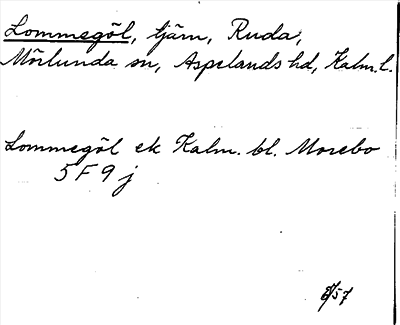 Lommegöl, tjärn, Ruda,
Mörlunda sn, Aspelands hd, Kalm. l.
Lommegöl ek Kalm. bl. Morebo
5 F 9 j
57